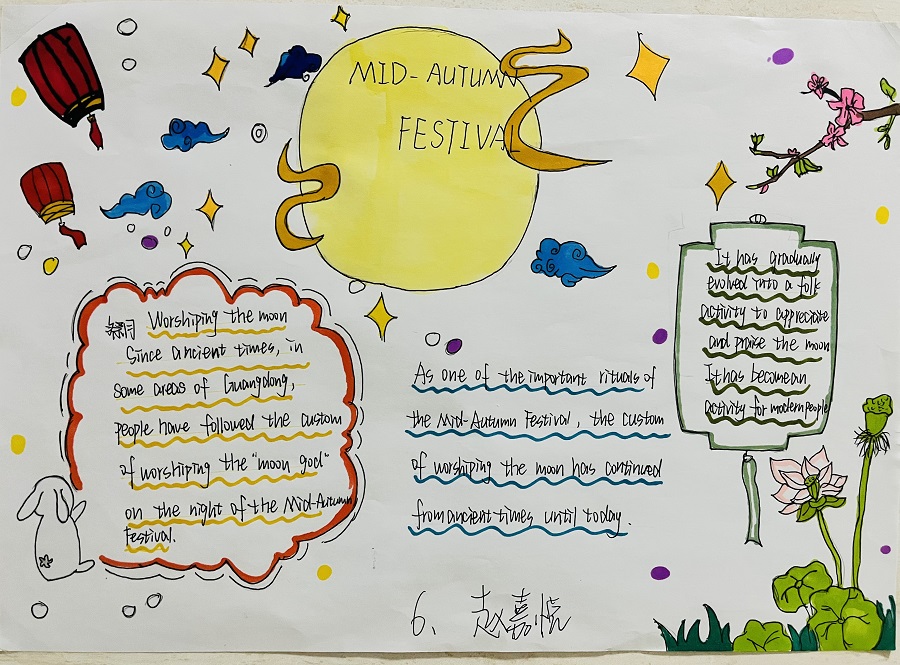 MID-AUTUMN
FESTIVAL
祭月 Worshiping the moon
Since ancient times, in
some areas of Guangdong,
people have followed the custom
of worshiping the "moon god"
on the night of the Mid-Autumn
Festival.
As one of the important rituals of
the Mid-Autumn Festival, the custom
of worshiping the moon has continued
from ancient times until today.
It has gradually
evolved into a folk
activity to appreciate
and praise the moon
It has become an
activity for modern people
6、 赵嘉悦